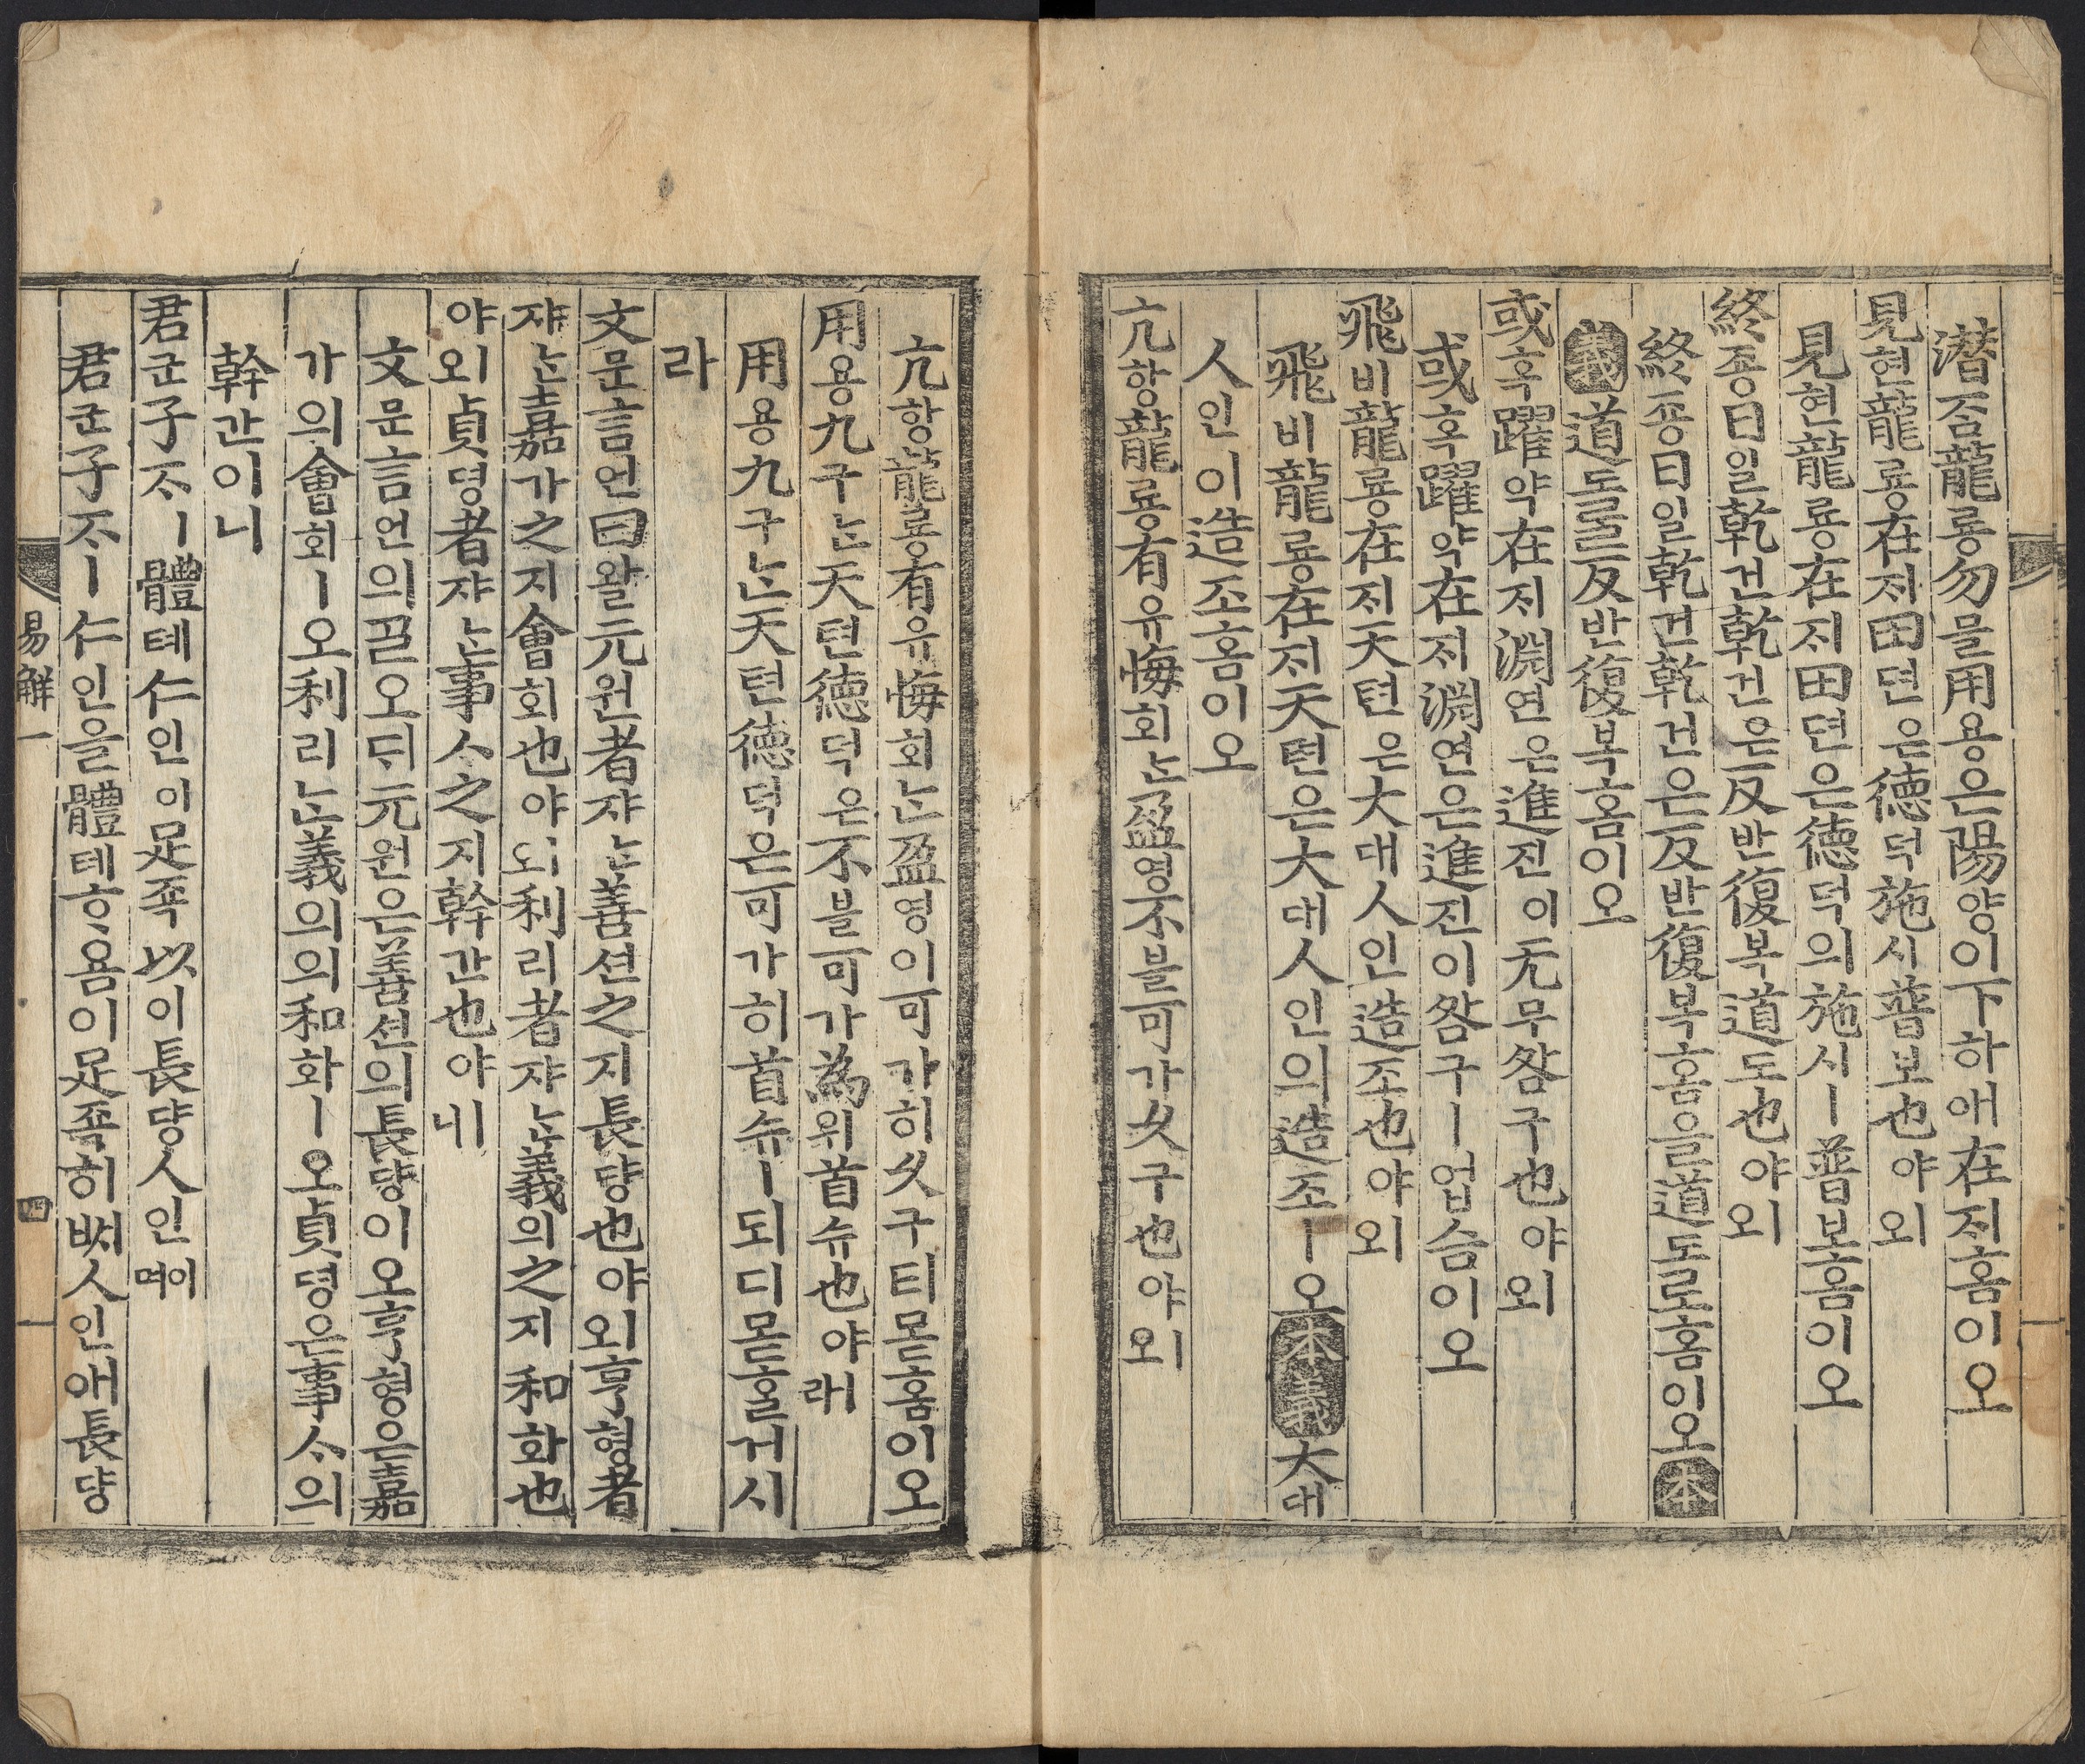 潜ᄌᆞᆷ龍룡勿믈用용은陽양이下하애在ᄌᆡ홈이오
見현龍룡在ᄌᆡ田뎐은德덕施시普보也야ㅣ오
見현龍룡在ᄌᆡ田뎐은德덕의施시ㅣ普보홈이오
終죵日일乾건乾건은反반復복道도也야ㅣ오
終죵日일乾건乾건은反반復복홈을道도로홈이오本
義道도ᄅᆞᆯ反반復복홈이오
或혹躍약在ᄌᆡ淵연은進진이无무咎구也야ㅣ오
或혹躍약在ᄌᆡ淵연은進진이咎구ㅣ업슴이오
飛비龍룡在ᄌᆡ天텬은大대人인造조也야ㅣ오
飛비龍룡在ᄌᆡ天텬은大대人인의造조ㅣ오本義大대
人인이造조홈이오
亢항龍룡有유悔회ᄂᆞᆫ盈영不블可가久구也야ㅣ오
亢항龍룡有유悔회ᄂᆞᆫ盈영이可가히久구티몯홈이오
用용九구ᄂᆞᆫ天텬德덕은不블可가爲위首슈也야ㅣ라
用용九구ᄂᆞᆫ天텬德덕은可가히首슈ㅣ되디몯ᄒᆞᆯ거시
라
文문言언曰왈元원者쟈ᄂᆞᆫ善션之지長댱也야ㅣ오亨형者
쟈ᄂᆞᆫ嘉가之지會회也야ㅣ오利리者쟈ᄂᆞᆫ義의之지和화也
야ㅣ오貞뎡者쟈ᄂᆞᆫ事ᄉᆞ之지幹간也야ㅣ니
文문言언의ᄀᆞᆯ오ᄃᆡ元원은善션의長댱이오亨형은嘉
가의會회ㅣ오利리ᄂᆞᆫ義의의和화ㅣ오貞뎡은事ᄉᆞ의
幹간이니
君군子ᄌᆞㅣ體톄仁인이足죡以이長댱人인이며
君군子ᄌᆞㅣ仁인을體톄ᄒᆞ욤이足죡히ᄡᅥ人인애長댱
易解一
四